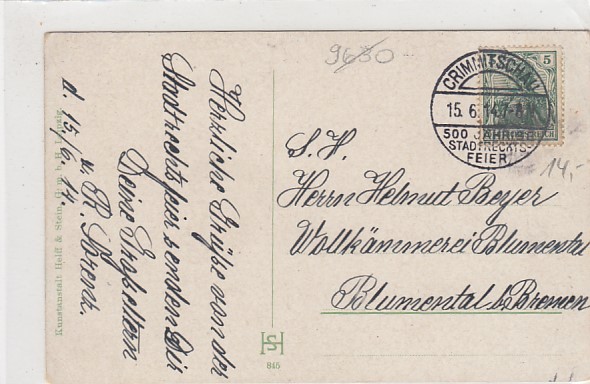 9630
Herzliche Grüße von der
Stadtrechtsfeier senden Dir
Deine Großeltern
u. R. 
d. 15./6. 14.
Kunstanstalt Helff & Stein, G. m. b. H., Leipzig
CRIMMITSCHAU
15. 6. 14. 7-8 N
500 JÄHRIGE
STADTRECHTS-
FEIER
5
14,-
S. H.
Herrn Helmut Beyer
Wollkämmerei Blumental
Blumental b/Bremen
HS
845